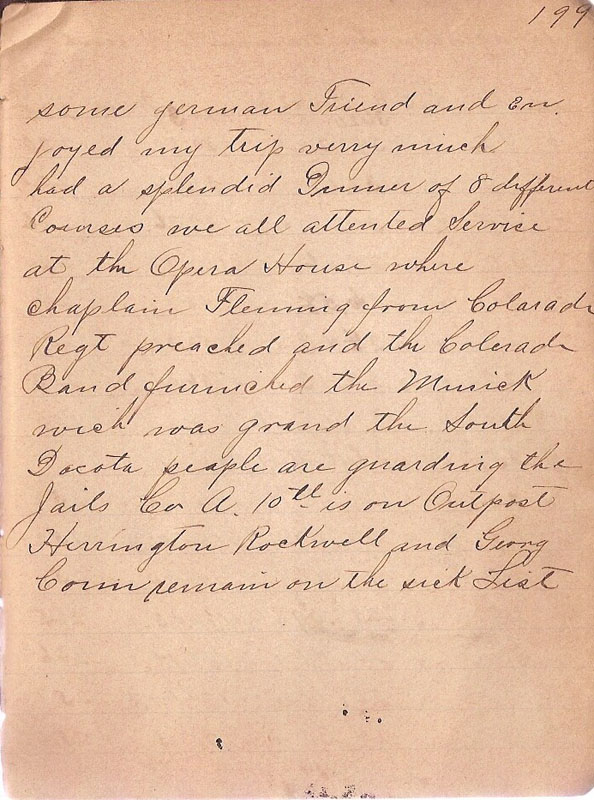 199
some german Friend and En.
joyed my trip verry much
had a splendid Dinner of 8 different
Courses we all attented Service
at the Opera House where
chaplain Flenning from Colarado
Regt preached and the Colerado
Band furniched the Musick
wich was grand the South
Dacota people are guarding the
Jails Co A. 10th is on Outpost
Herrington Rockwell and Georg
remain on the sick List